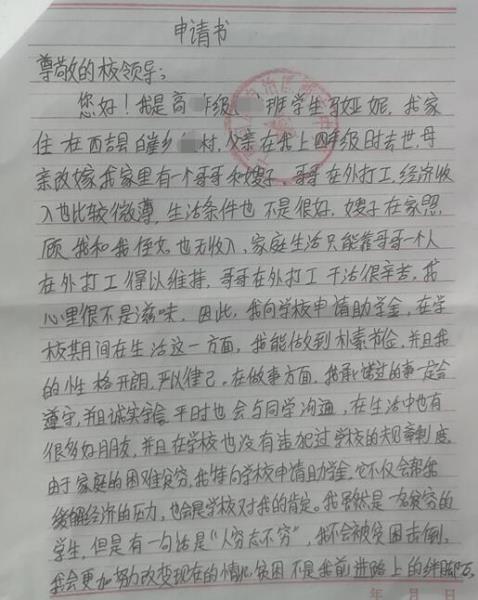 申请书
尊敬的校领导:
您好!我是高 年级 班学生 娅妮,我家
住在西吉县 乡 村,父亲在我上四年级时去世,母
亲改嫁,我家里有一个哥哥和嫂子,哥哥在外打工,经济收
入也比较微薄,生活条件也不是很好,嫂子在家照
顾我和我侄女,也无收入,家庭生活只能靠哥哥一个人
在外打工得以维持,哥哥在外打工干活很辛苦,我
心里很不是滋味,因此,我向学校申请助学金,在学
校其间在生活这一方面,我能做到朴素节俭,并且我
的性格开朗,严以律己,在做事方面,我承诺过的事一定会
遵守,并且诚实守信,平时也会与同学沟通,在生活中也有
很多好朋友,并且在学校也没有违犯过学校的规章制度。
由于家庭的困难贫穷,我特向学校申请助学金,它不仅会帮我
缓解经济的压力,也会是学校对我的肯定。我虽然是一名贫穷的
学生,但是有一句话是“人穷志不穷”,我不会被贫困击倒,
我会更加努力改变现在的情况,贫困不是我前进路上的绊脚石,
年 月 日